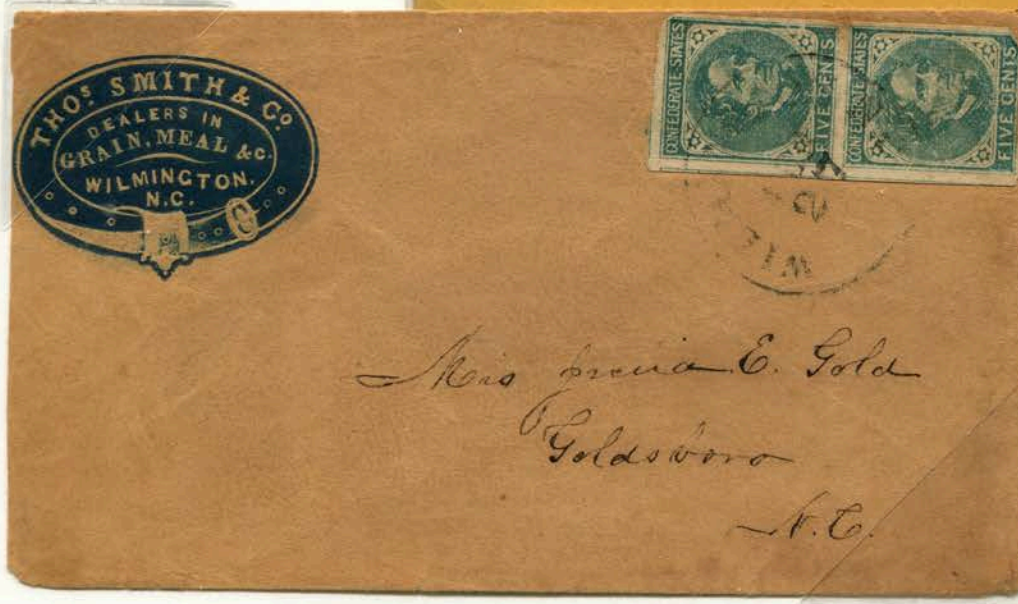 THOS SMITH & CO
DEALERS IN
GRAIN, MEAL &c.
WILMINGTON,
N.C.
CONFEDERATE STATES
FIVE CENTS
CONFEDERATE STATES
FIVE CENTS
Mis E. Gold
Goldsboro
N.C.